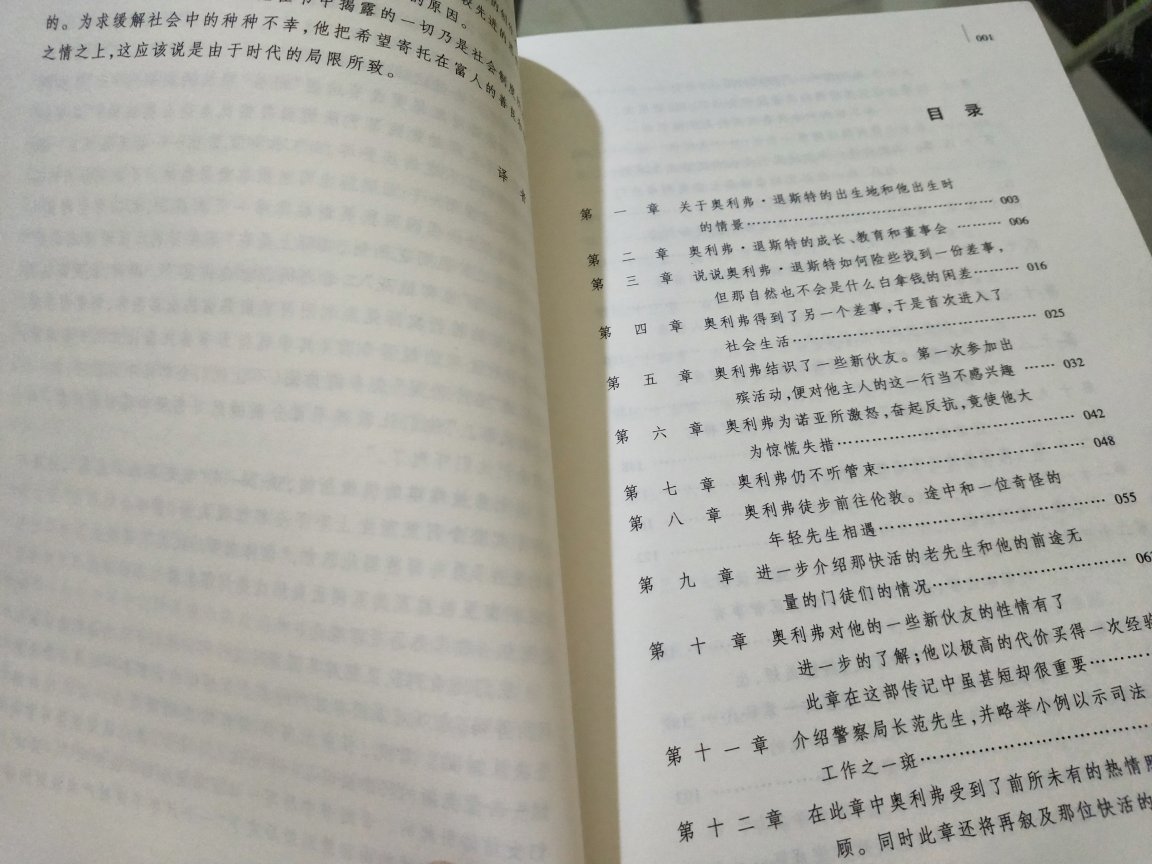 的原因。
书中揭露的一切乃是社会制度
的。为求缓解社会中的种种不幸，他把希望寄托在富人的善良
之情之上，这应该说是由于时代的局限所致。
译 者
001
目 录
第 一 章 关于奥利弗·退斯特的出生地和他出生时
的情景…………………………………… 003
第 二 章 奥利弗·退斯特的成长、教育和董事会 ……… 006
第 三 章 说说奥利弗·退斯特如何险些找到一份差事，
但那自然也不会是什么白拿钱的闲差……… 016
第 四 章 奥利弗得到了另一个差事，于是首次进入了
社会生活…………………………………… 025
第 五 章 奥利弗结识了一些新伙友。第一次参加出
殡活动，便对他主人的这一行当不感兴趣 …… 032
第 六 章 奥利弗为诺亚所激怒，奋起反抗，竟使他大
为惊慌失措…………………………………… 042
第 七 章 奥利弗仍不听管束…………………………… 048
第 八 章 奥利弗徒步前往伦敦。途中和一位奇怪的
年轻先生相遇…………………………………… 055
第 九 章 进一步介绍那快活的老先生和他的前途无
量的门徒们的情况……………………………
第 十 章 奥利弗对他的一些新伙友的性情有了
进一步的了解；他以极高的代价买得一次经验
此章在这部传记中虽甚短却很重要…………
第 十 一 章 介绍警察局长范先生，并略举小例以示司法
工作之一斑……………………………………
第 十 二 章 在此章中奥利弗受到了前所未有的热情照
顾。同时此章还将再叙及那位快活的